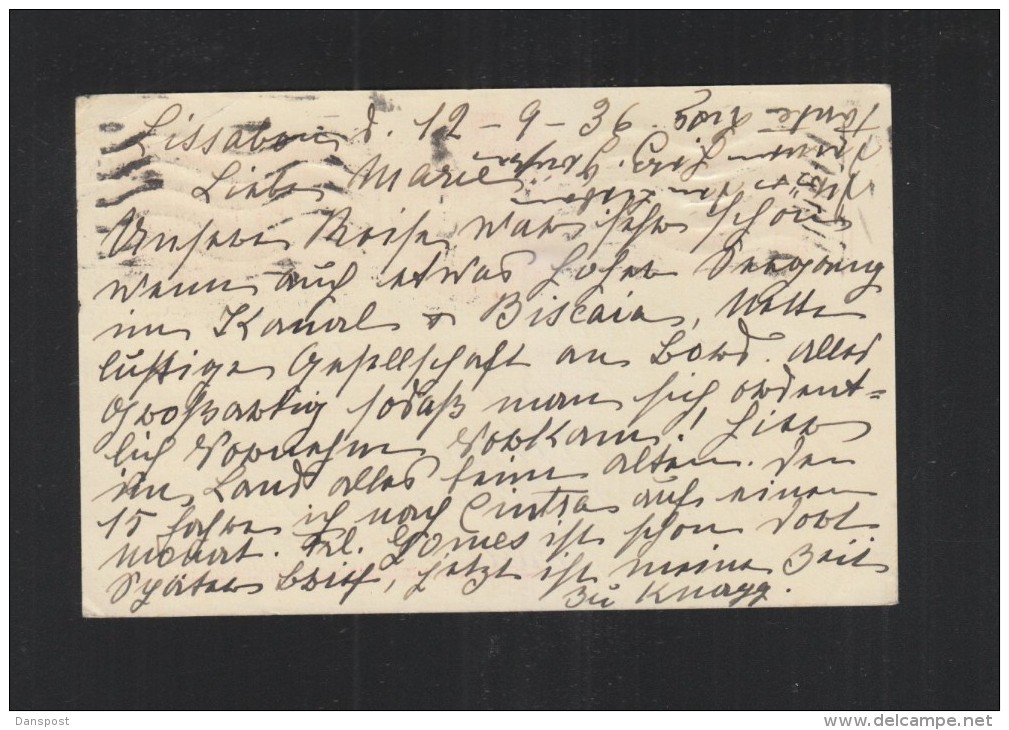 Lissabon d. 12-9-36
Liebe Marie!
Unsere Reise war sehr schön
wenn auch etwas hoher Seegang
im Kanal & Biscaia, Nette
lustige Gesellschaft an Bord. alles
Großartig sodaß man sich ordent=
lich Vornehm Vorkam! Hier
im Land alles beim alten. Den
15 fahre ich nach Cintra auf einen
Monat. Frl. Gomes ist schon dort
Später Brief, jetzt ist meine Zeit
zu Knapp.
Tante
Danspost
www.delcampe.net